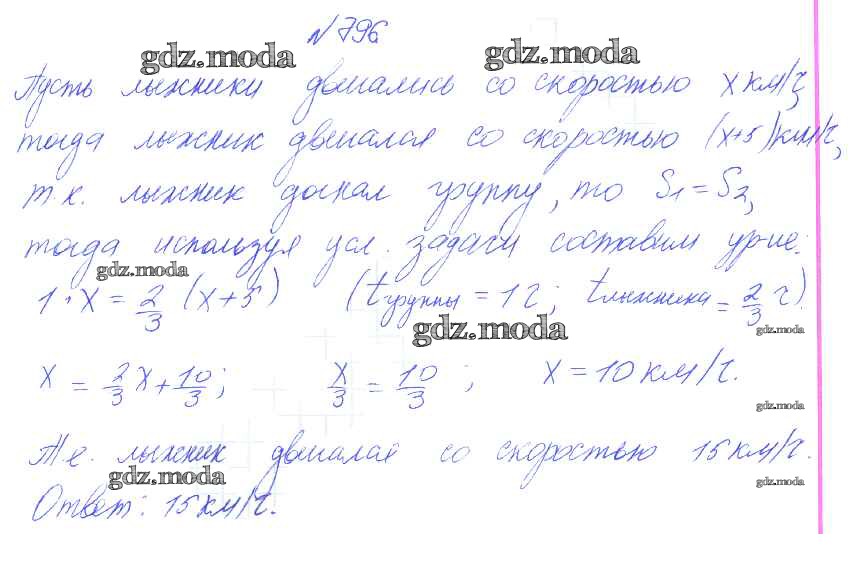 №796
gdz.moda gdz.moda
Пусть лыжники двигались со скоростью x км/ч,
тогда лыжник двигался со скоростью (x+5) км/ч,
т.к. лыжник догнал группу, то S1 = S2,
тогда используя усл. задачи составим ур-ие:
gdz.moda
1·x = 2/3 (x+5) (tгруппы = 1ч; tлыжника = 2/3 ч).
gdz.moda gdz.moda
x = 2/3 x + 10/3; x/3 = 10/3; x = 10 км/ч.
gdz.moda
Т.е. лыжник двигался со скоростью 15 км/ч.
gdz.moda gdz.moda
Ответ: 15 км/ч.